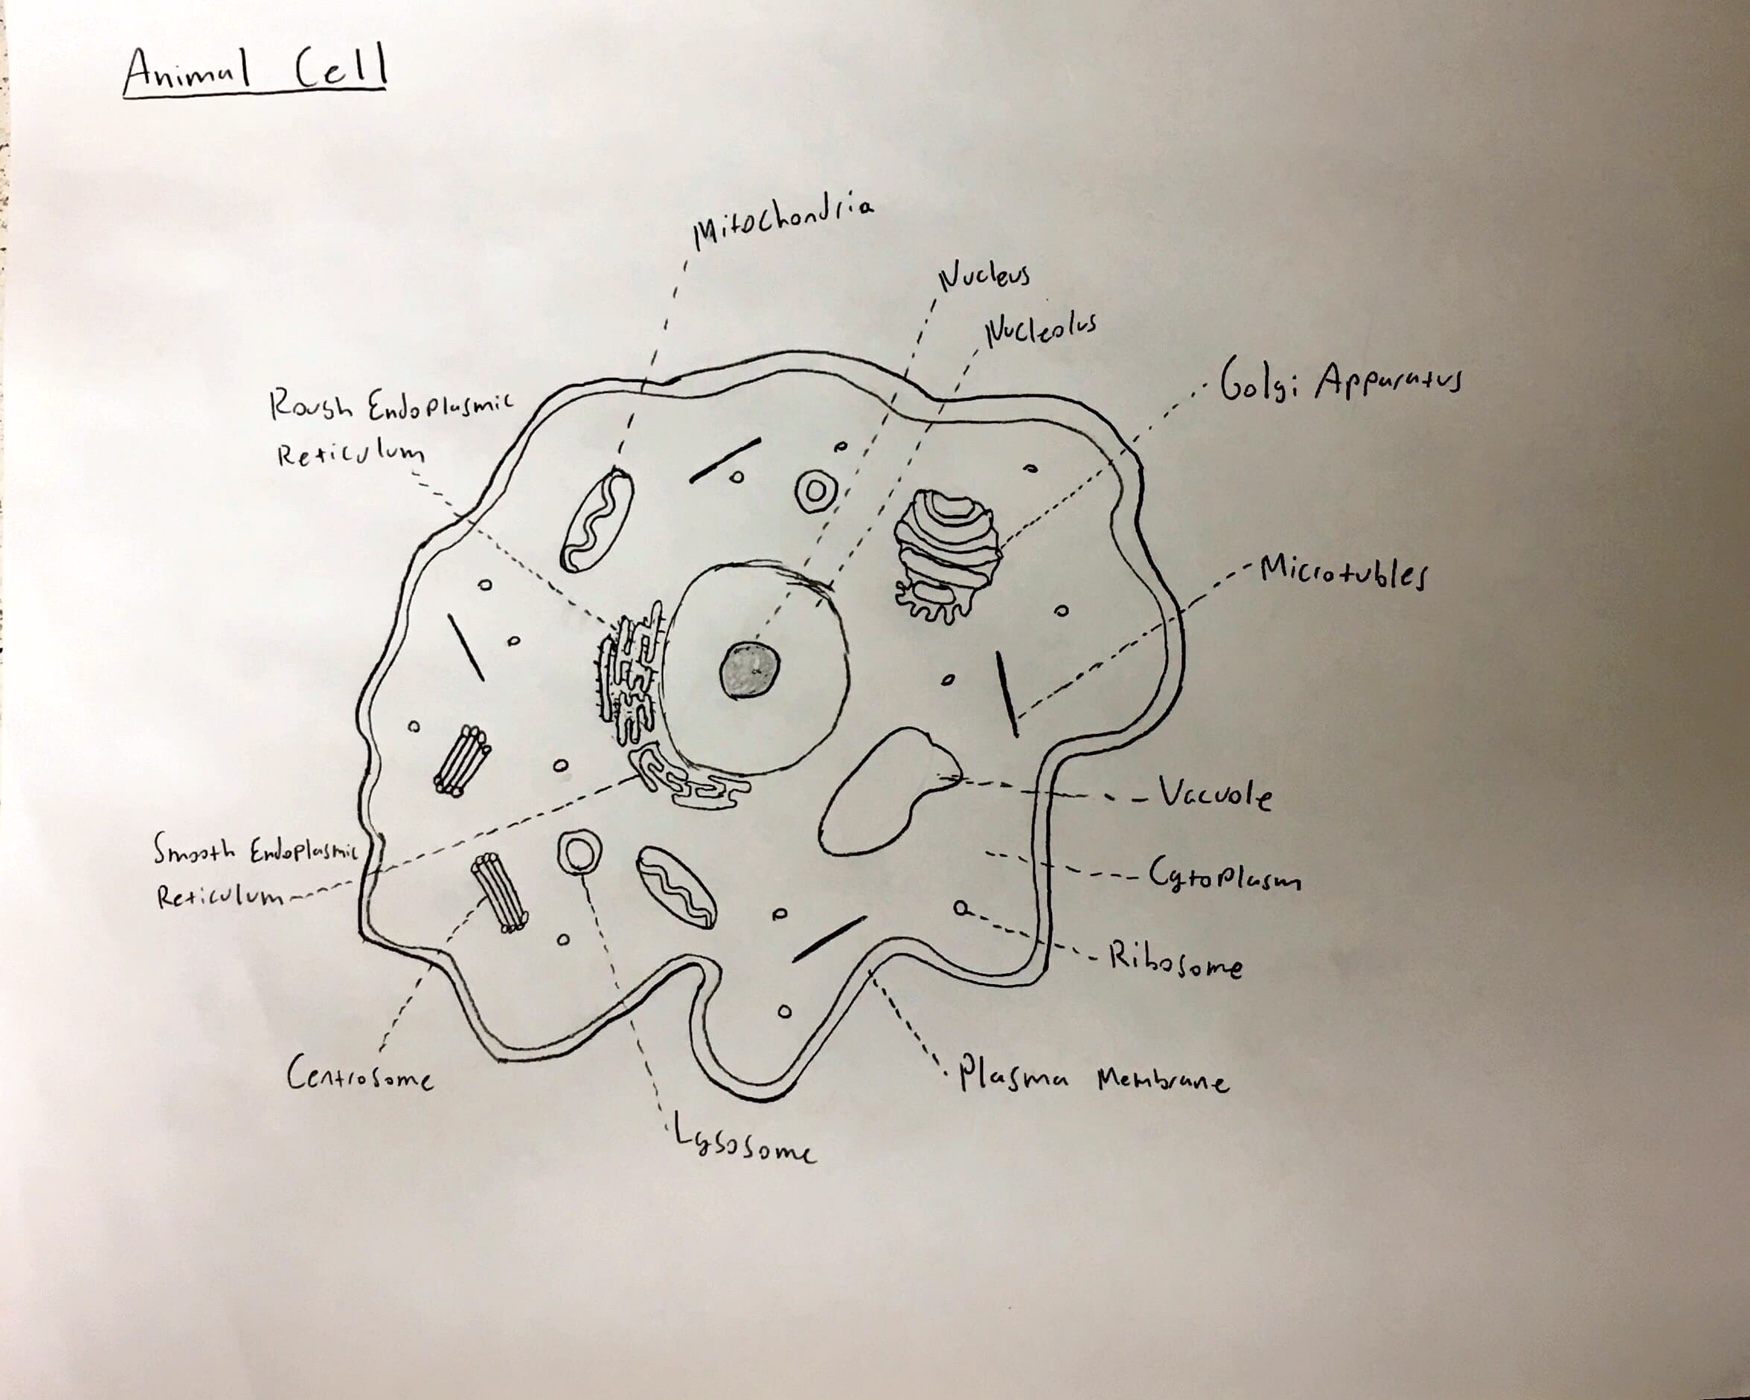 Animal Cell
Mitochondria
Nucleus
Nucleolus
Golgi Apparatus
Rough Endoplasmic
Reticulum
Microtubles
Vacuole
Smooth Endoplasmic
Reticulum
Cytoplasm
Ribosome
Centrosome
Plasma Membrane
Lysosome